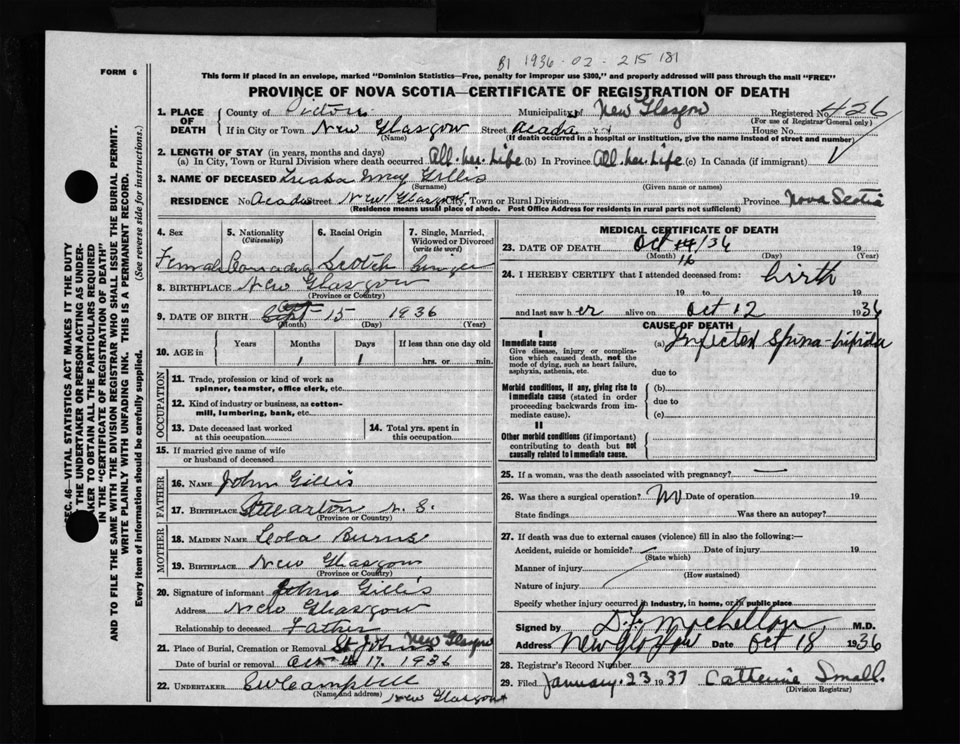 B1 1936-02-215181
FORM 6
This form if placed in an envelope, marked "Dominion Statistics—Free, penalty for improper use $300," and properly addressed will pass through the mail "FREE"
PROVINCE OF NOVA SCOTIA—CERTIFICATE OF REGISTRATION OF DEATH
1. PLACE OF DEATH
County of Pictou Municipality of New Glasgow Registered No. 426
(For use of Registrar General only)
If in City or Town New Glasgow Street Acadia House No.
(Name) (If death occurred in a hospital or institution, give the name instead of street and number)
2. LENGTH OF STAY (in years, months and days)
(a) In City, Town or Rural Division where death occurred All her Life (b) In Province All her Life (c) In Canada (if immigrant)
3. NAME OF DECEASED May Gillis
(Surname) (Given name or names)
RESIDENCE No. Acadia Street New Glasgow City, Town or Rural Division Province Nova Scotia
(Residence means usual place of abode. Post Office Address for residents in rural parts not sufficient)
4. Sex 5. Nationality (Citizenship) 6. Racial Origin 7. Single, Married, Widowed or Divorced (write the word)
Female Canadian Scotch Single
8. BIRTHPLACE New Glasgow
(Province or Country)
9. DATE OF BIRTH Sept 15 1936
(Month) (Day) (Year)
10. AGE in Years Months Days If less than one day old
1 1 hrs. or min.
OCCUPATION
11. Trade, profession or kind of work as spinner, teamster, office clerk, etc.
12. Kind of industry or business, as cotton-mill, lumbering, bank, etc.
13. Date deceased last worked at this occupation
14. Total yrs. spent in this occupation
15. If married give name of wife or husband of deceased
FATHER
16. NAME John Gillis
17. BIRTHPLACE Stellarton N. S.
(Province or Country)
MOTHER
18. MAIDEN NAME Leola Burns
19. BIRTHPLACE New Glasgow
(Province or Country)
20. Signature of informant John Gillis
Address New Glasgow
Relationship to deceased Father
21. Place of Burial, Cremation or Removal St John's New Glasgow
Date of burial or removal Oct 17. 1936
22. UNDERTAKER E W Campbell
(Name and address)
New Glasgow
MEDICAL CERTIFICATE OF DEATH
23. DATE OF DEATH Oct 16/36 19
(Month) (Day) (Year)
24. I HEREBY CERTIFY that I attended deceased from: birth
19 to 19
and last saw her alive on Oct 12 1936
CAUSE OF DEATH
I
Immediate cause
Give disease, injury or complication which caused death, not the mode of dying, such as heart failure, asphyxia, asthenia, etc.
(a) Infected Spina-bifida
due to
Morbid conditions, if any, giving rise to immediate cause (stated in order proceeding backwards from immediate cause).
(b)
due to
(c)
II
Other morbid conditions (if important) contributing to death but not causally related to immediate cause.
25. If a woman, was the death associated with pregnancy?
26. Was there a surgical operation? No Date of operation 19
State findings Was there an autopsy?
27. If death was due to external causes (violence) fill in also the following:—
Accident, suicide or homicide? Date of injury 19
(State which)
Manner of injury
(How sustained)
Nature of injury
Specify whether injury occurred in industry, in home, or in public place
Signed by M.D.
Address New Glasgow Date Oct 18 1936
28. Registrar's Record Number
29. Filed January. 23 1937 Catherine Small.
(Division Registrar)
SEC. 46—VITAL STATISTICS ACT MAKES IT THE DUTY
THE UNDERTAKER OR PERSON ACTING AS UNDER-
TAKER TO OBTAIN ALL THE PARTICULARS REQUIRED
IN THE "CERTIFICATE OF REGISTRATION OF DEATH"
AND TO FILE THE SAME WITH THE DIVISION REGISTRAR WHO SHALL ISSUE THE BURIAL PERMIT.
WRITE PLAINLY WITH UNFADING INK. THIS IS A PERMANENT RECORD.
Every item of Information should be carefully supplied. (See reverse side for instructions.)